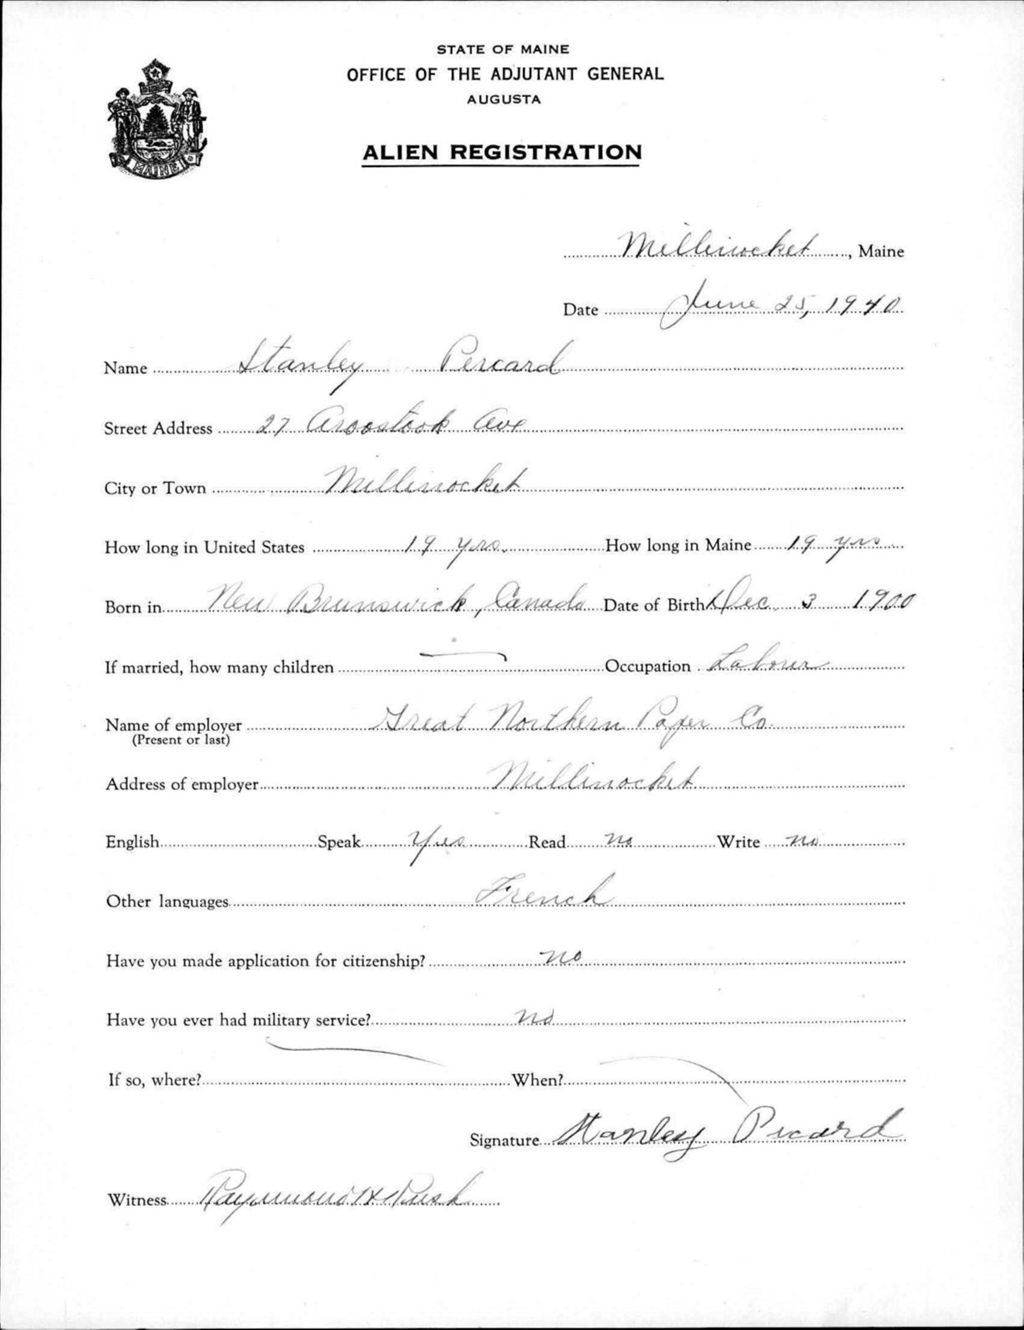 STATE OF MAINE
OFFICE OF THE ADJUTANT GENERAL
AUGUSTA
ALIEN REGISTRATION
MAINE
Millinocket, Maine
Date June 25, 1940
Name Stanley Percard
Street Address 27 Aroostook Ave
City or Town Millinocket
How long in United States 19 yrs. How long in Maine 19 yrs
Born in New Brunswick, Canada Date of Birth Dec. 3 1900
If married, how many children — Occupation Laborer
Name of employer Great Northern Paper Co.
(Present or last)
Address of employer Millinocket
English Speak Yes Read no Write no
Other languages French
Have you made application for citizenship? no
Have you ever had military service? no
If so, where? When?
Signature Stanley Picard
Witness Raymond H